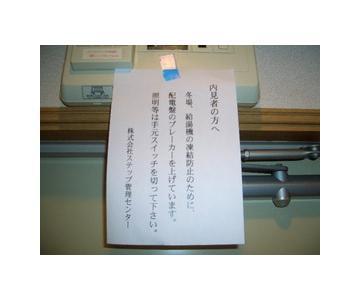 内見者の方へ
冬場、給湯機の凍結防止のために、
配電盤のブレーカーを上げています。
照明等は手元スイッチを切って下さい。
株式会社ステップ管理センター